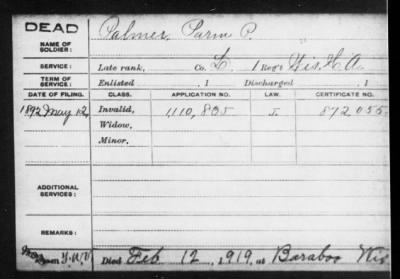 DEAD
NAME OF SOLDIER: Palmer, Parm P.
SERVICE: Late rank, Co. L, 1 Reg't Wis. H. A.
TERM OF SERVICE: Enlisted , 1 Discharged , 1
DATE OF FILING. CLASS. APPLICATION NO. LAW. CERTIFICATE NO.
1892 May 12, Invalid, 1,110,805 J. 872,055.
Widow,
Minor,
ADDITIONAL SERVICES:
REMARKS:
Died Feb 12, 1919, at Baraboo Wis